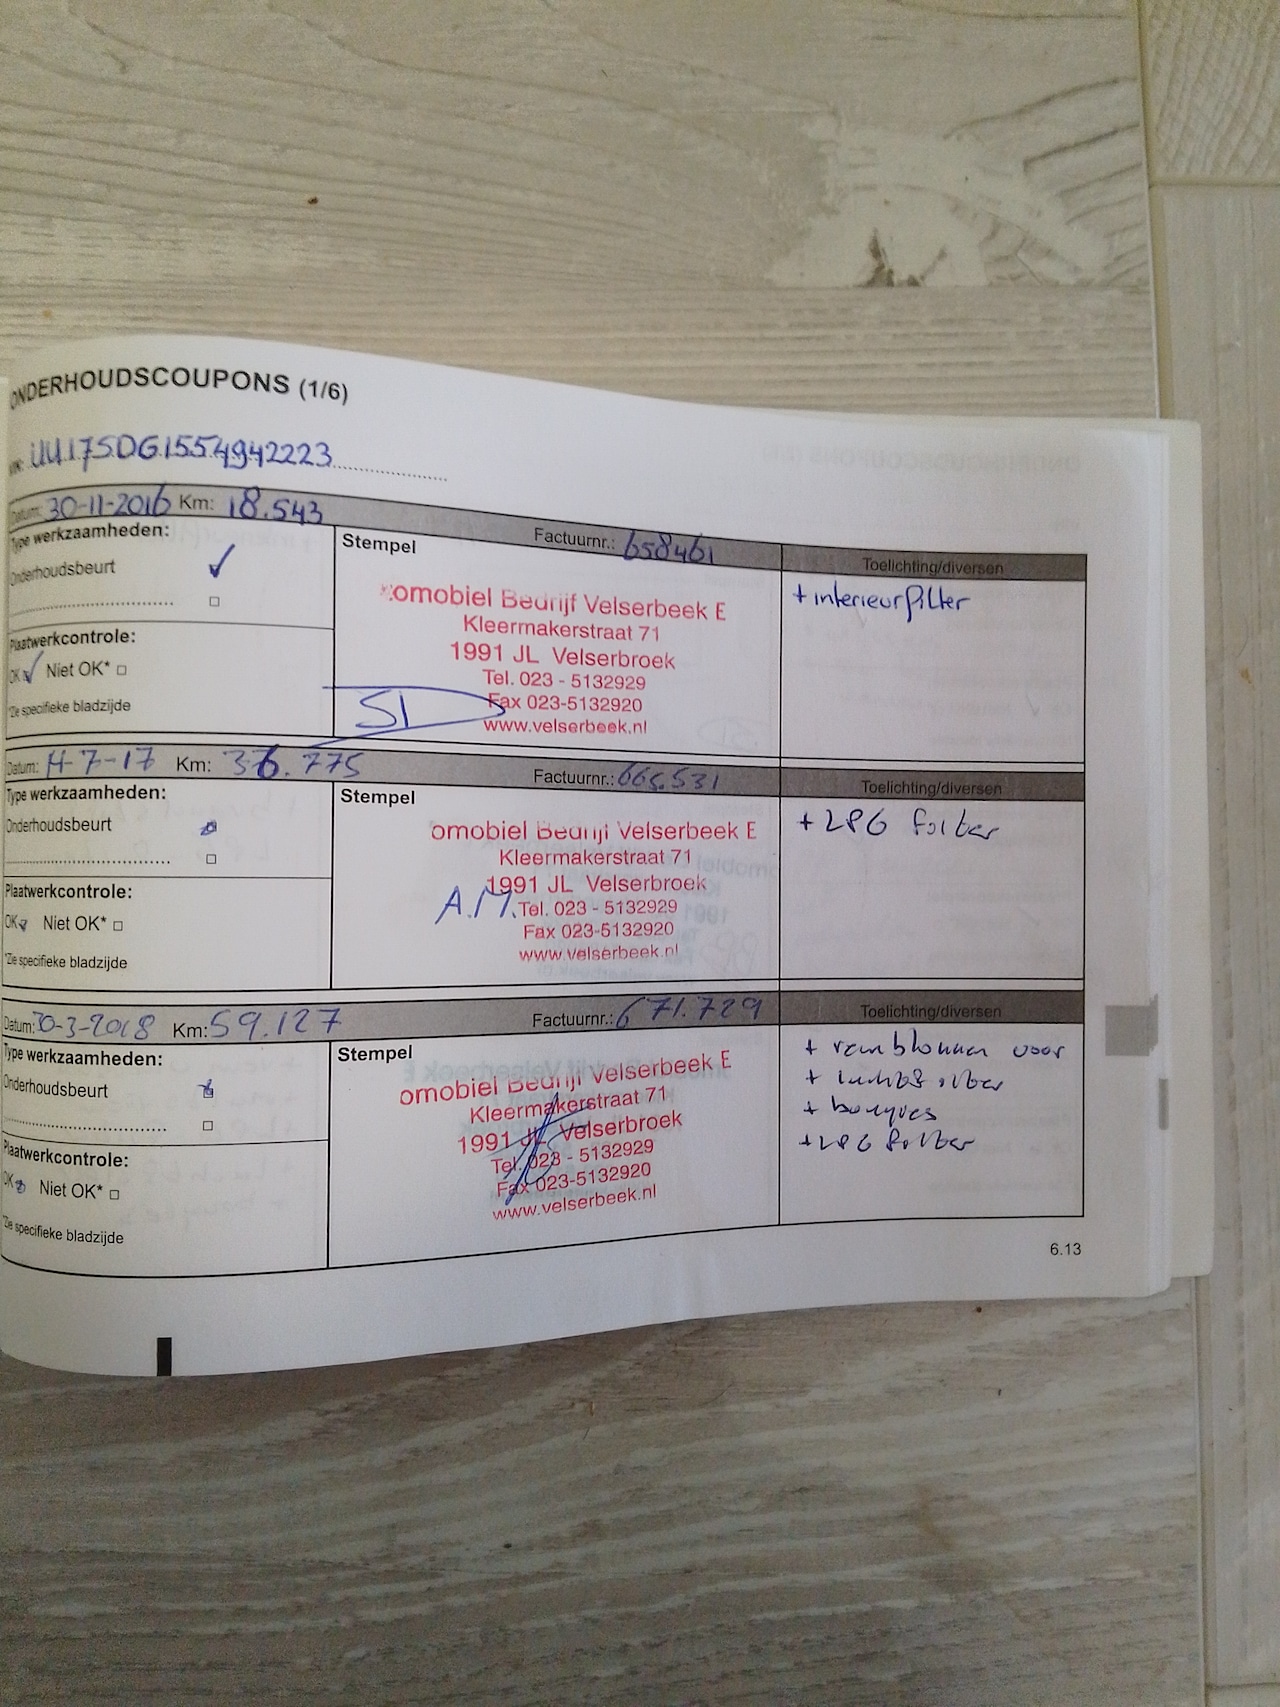 ONDERHOUDSCOUPONS (1/6)
VIN: UU17SDG1554942223
Datum: 30-11-2016 Km: 18.543 Factuurnr.: 658461
Type werkzaamheden:
Stempel
Toelichting/diversen
Onderhoudsbeurt
+ interieurfilter
omobiel Bedrijf Velserbeek E
Kleermakerstraat 71
1991 JL Velserbroek
Tel. 023 - 5132929
Fax 023-5132920
www.velserbeek.nl
SL
Plaatwerkcontrole:
OK Niet OK*
*Zie specifieke bladzijde
Datum: 11-7-17 Km: 36.775 Factuurnr.: 665.531
Type werkzaamheden:
Stempel
Toelichting/diversen
Onderhoudsbeurt
+ LPG folter
omobiel Bedrijf Velserbeek E
Kleermakerstraat 71
1991 JL Velserbroek
A.M. Tel. 023 - 5132929
Fax 023-5132920
www.velserbeek.nl
Plaatwerkcontrole:
OK Niet OK*
*Zie specifieke bladzijde
Datum: 30-3-2018 Km: 59.127 Factuurnr.: 671.729
Type werkzaamheden:
Stempel
Toelichting/diversen
Onderhoudsbeurt
+ remblokken voor
+ luchtfilter
+ bougies
+ LPG folter
omobiel Bedrijf Velserbeek E
Kleermakerstraat 71
1991 JL Velserbroek
Tel. 023 - 5132929
Fax 023-5132920
www.velserbeek.nl
Plaatwerkcontrole:
OK Niet OK*
*Zie specifieke bladzijde
6.13